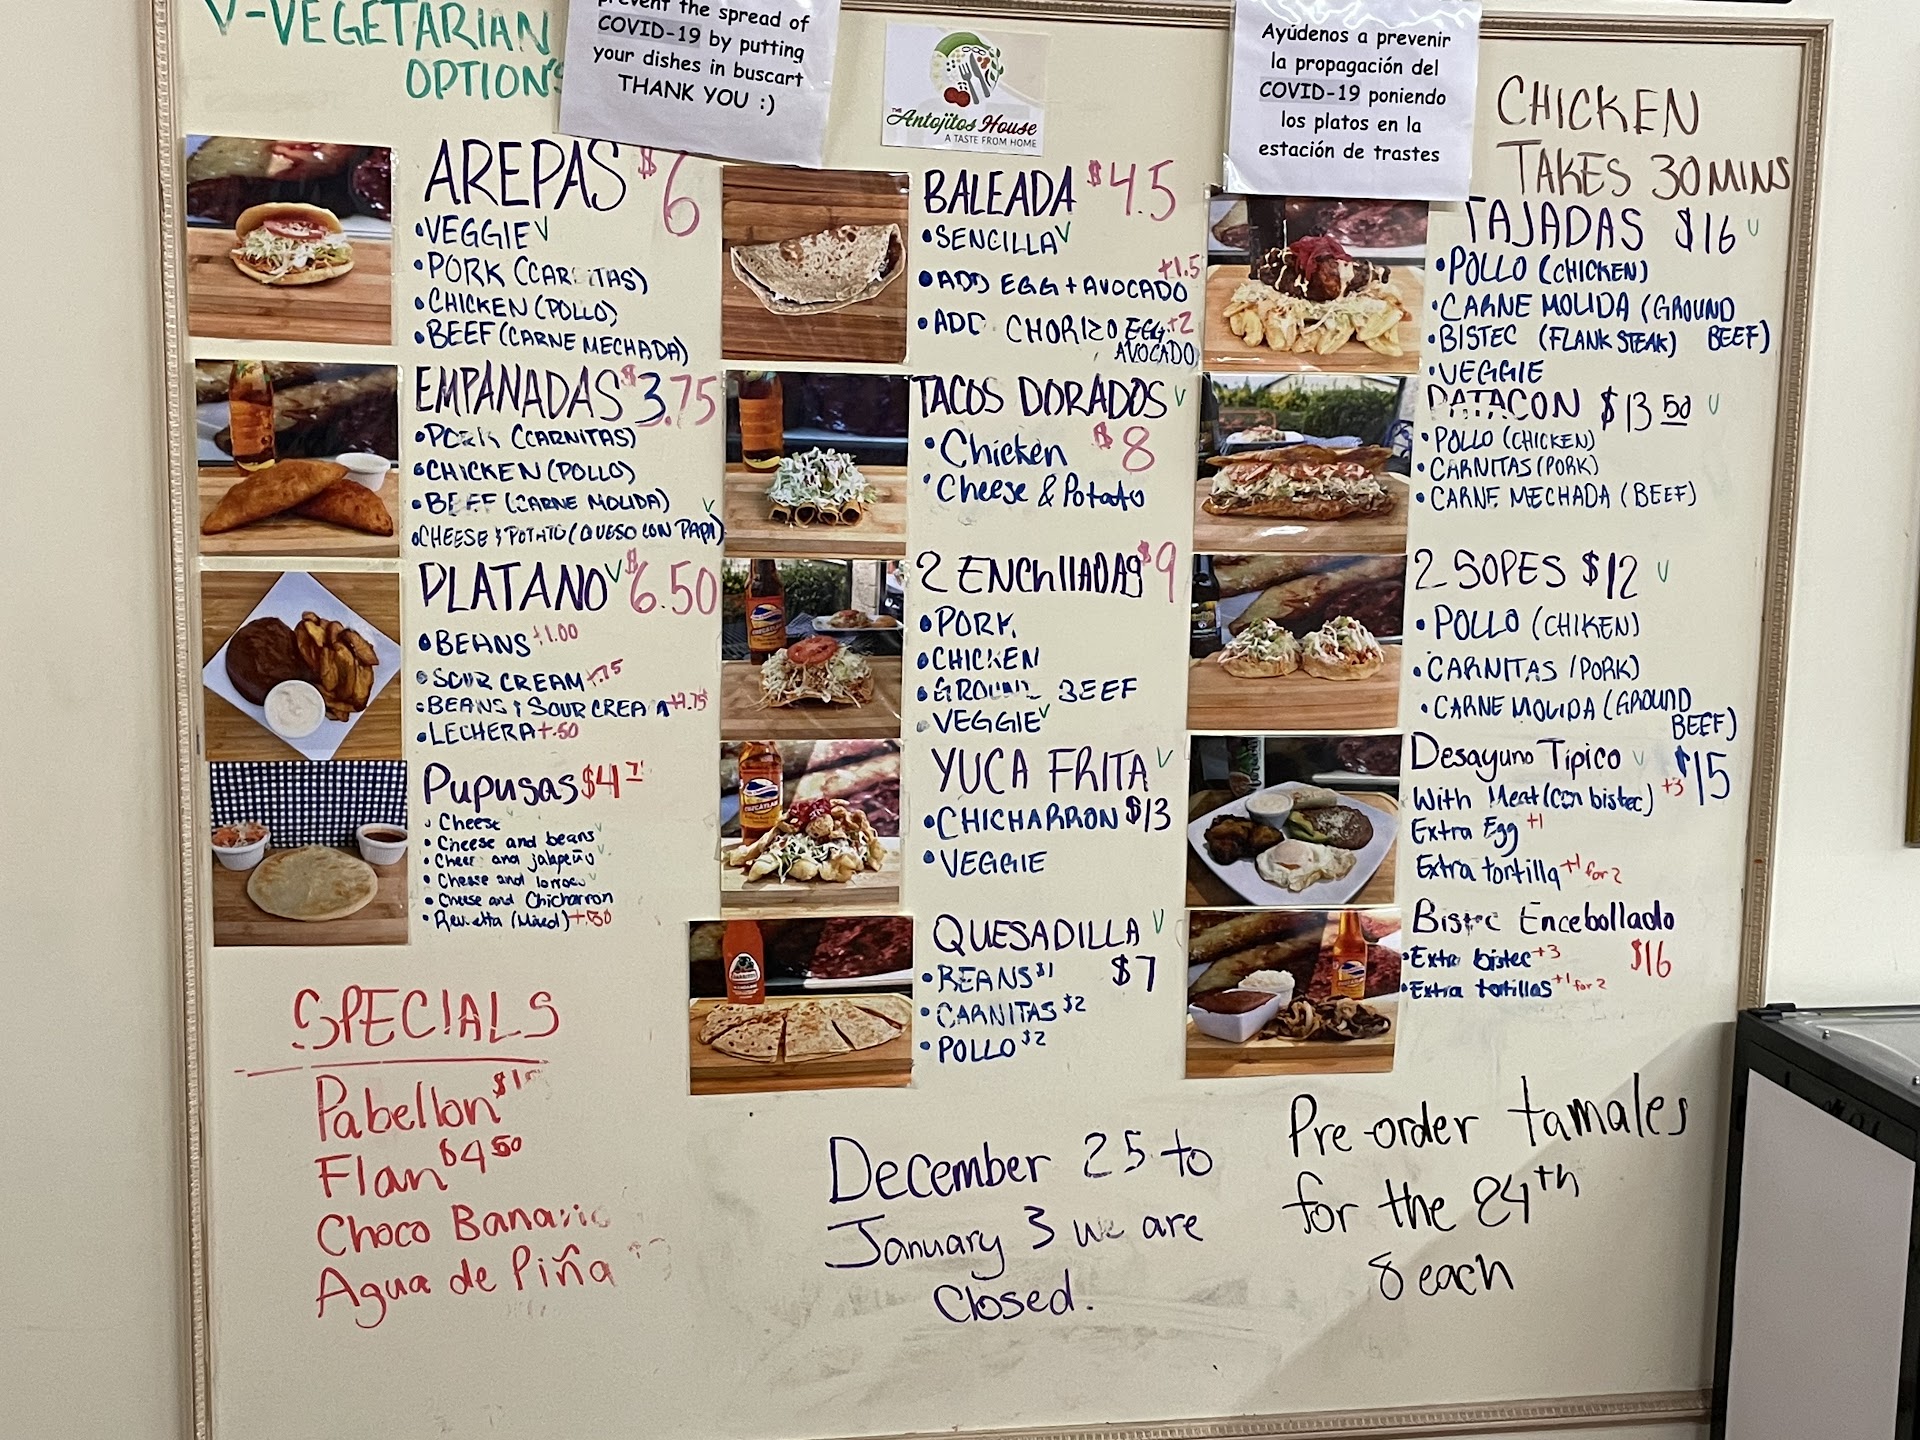 V-VEGETARIAN
OPTIONS
prevent the spread of
COVID-19 by putting
your dishes in buscart
THANK YOU :)
THE
Antojitos House
A TASTE FROM HOME
Ayúdenos a prevenir
la propagación del
COVID-19 poniendo
los platos en la
estación de trastes
CHICKEN
TAKES 30 MINS
AREPAS $6
•VEGGIE V
•PORK (CARNITAS)
•CHICKEN (POLLO)
•BEEF (CARNE MECHADA)
EMPANADAS $3.75
•PORK (CARNITAS)
•CHICKEN (POLLO)
•BEEF (CARNE MOLIDA) V
•CHEESE & POTATO (QUESO CON PAPA)
PLATANO V $6.50
•BEANS +1.00
•SOUR CREAM +.75
•BEANS & SOUR CREAM +1.75
•LECHERA +.50
Pupusas $4
• Cheese
• Cheese and beans V
• Cheese and jalapeño V
• Cheese and lorroco V
• Cheese and Chicharron
• Revuelta (Mixed) +.50
SPECIALS
Pabellon
Flan $4.50
Choco Banano
Agua de Piña
BALEADA $4.5
•SENCILLA V
•ADD EGG + AVOCADO +1.5
•ADD CHORIZO EGG +2
AVOCADO
TACOS DORADOS V
•Chicken $8
•Cheese & Potato
2 ENCHILADAS $9
•PORK
•CHICKEN
•GROUND BEEF
•VEGGIE V
YUCA FRITA V
•CHICHARRON $13
•VEGGIE
QUESADILLA V
•BEANS $1 $7
•CARNITAS $2
•POLLO $2
TAJADAS $16 V
•POLLO (CHICKEN)
•CARNE MOLIDA (GROUND
BEEF)
•BISTEC (FLANK STEAK)
•VEGGIE
PATACON $13.50 V
•POLLO (CHICKEN)
•CARNITAS (PORK)
•CARNE MECHADA (BEEF)
2 SOPES $12 V
•POLLO (CHIKEN)
•CARNITAS (PORK)
•CARNE MOLIDA (GROUND
BEEF)
Desayuno Típico V $15
With Meat (con bistec) +3
Extra Egg +1
Extra tortilla +1 for 2
Bistec Encebollado
•Extra bistec +3 $16
•Extra tortillas +1 for 2
December 25 to
January 3 we are
Closed.
Pre-order tamales
for the 24th
8 each